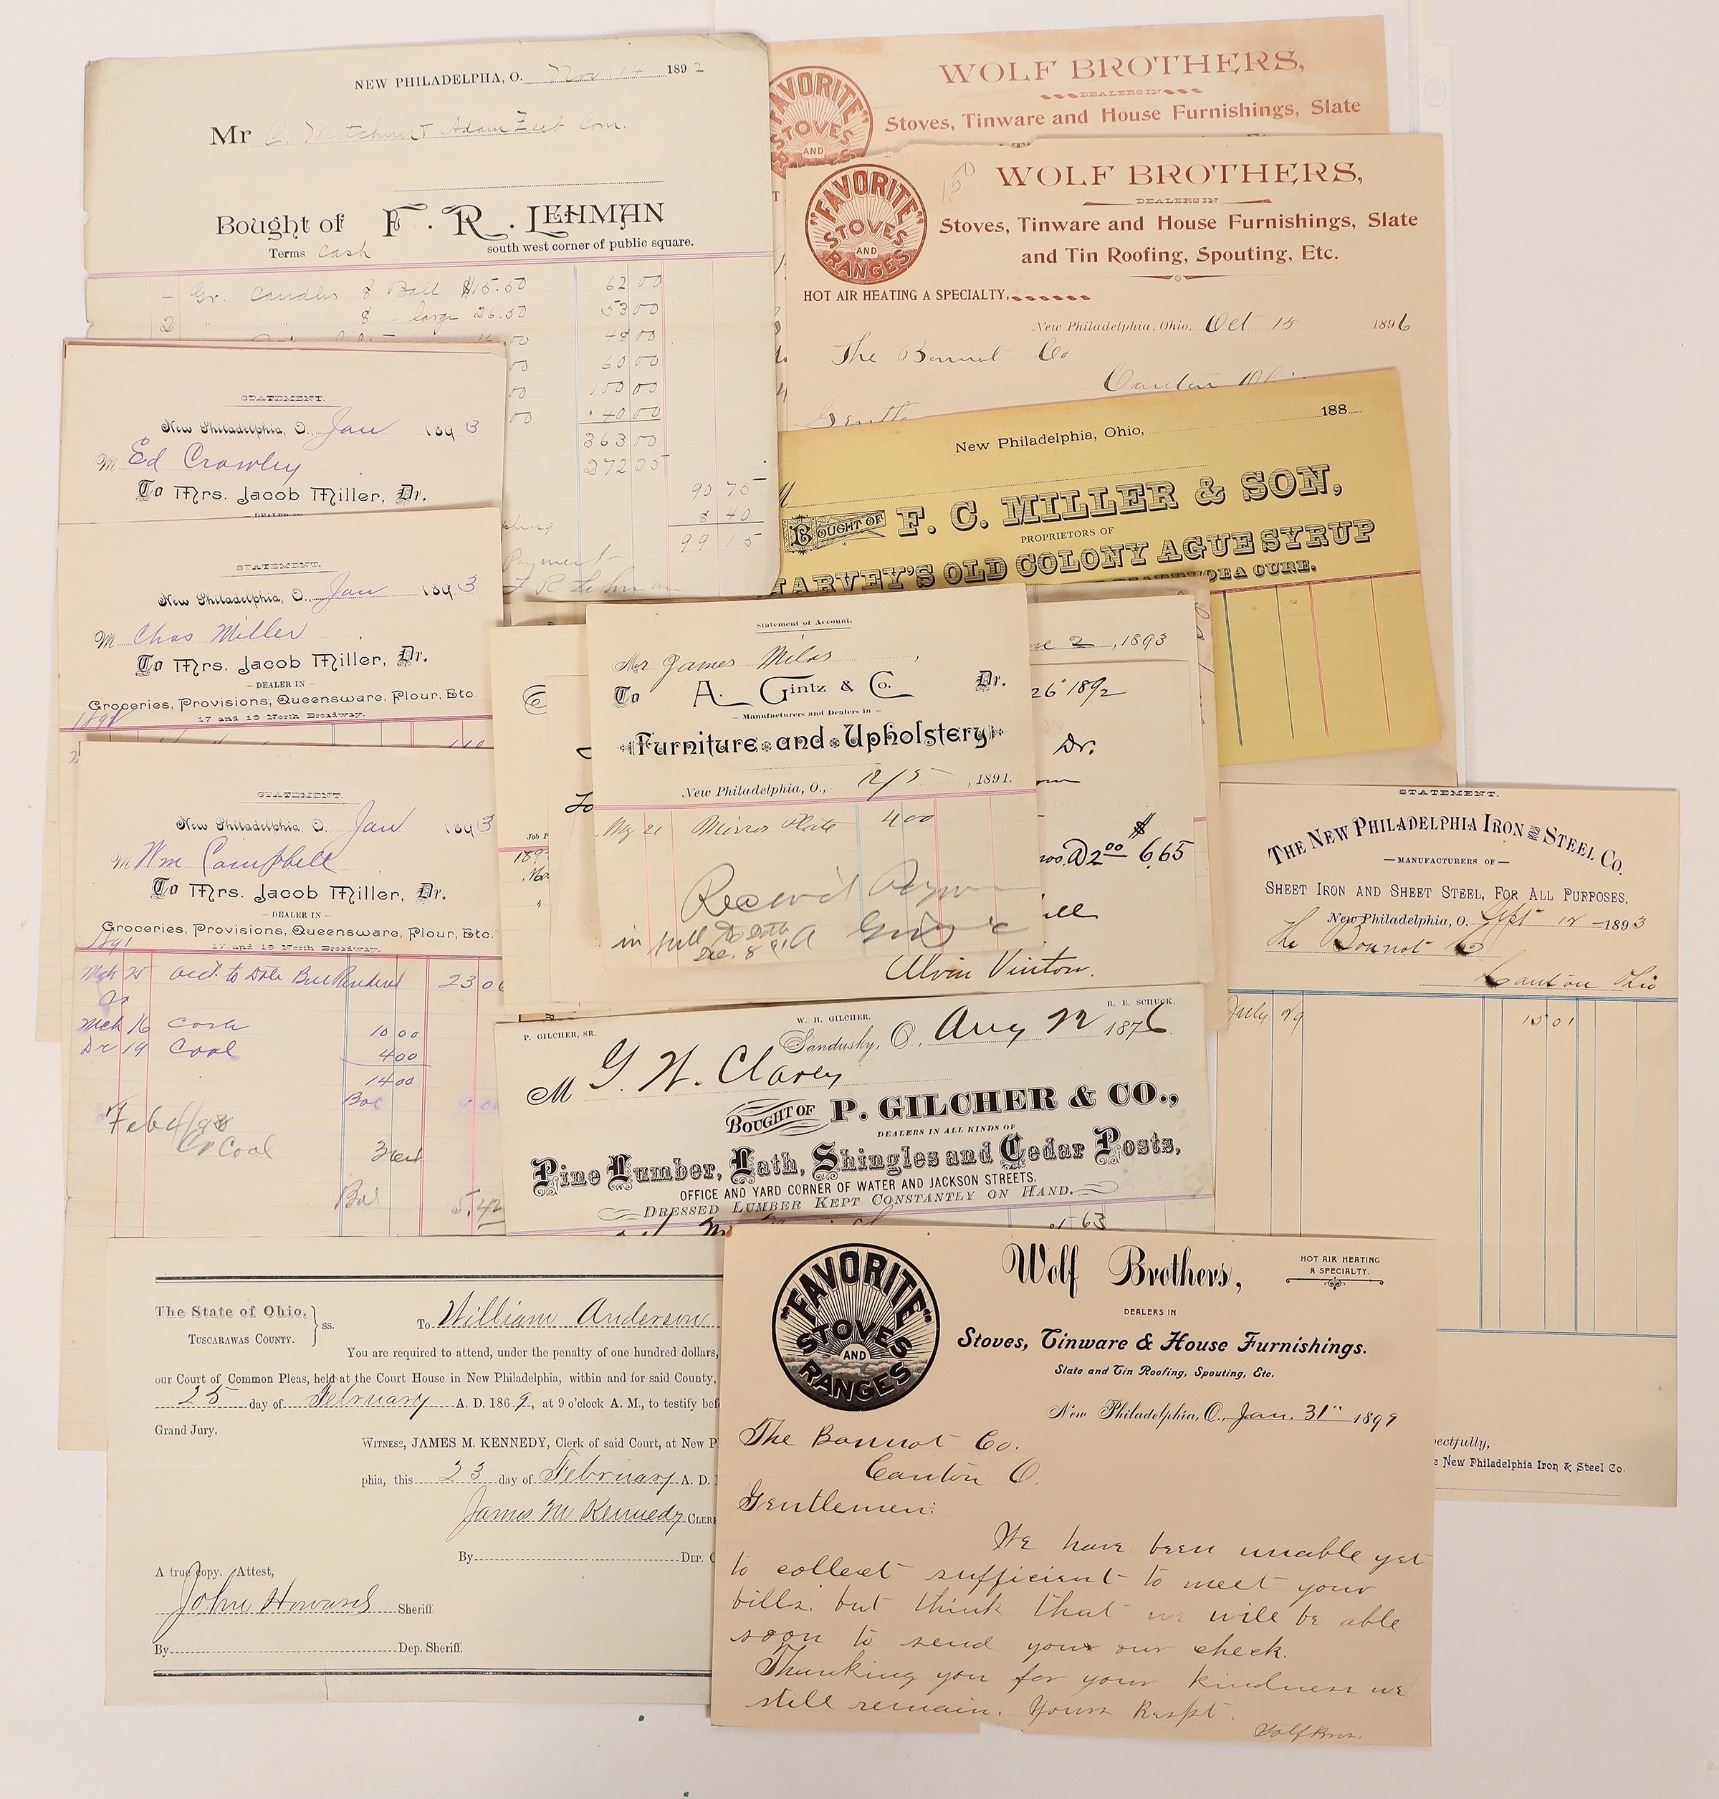 NEW PHILADELPHA, O. Nov. 14 1892
Mr C.
Bought of F. R. LEHMAN
Terms Cash
south west corner of public square.
4 Gr. Candles 8 Ball $15.50 62 00
2 " " 8 " large 26.50 53 00
48 00
60 00
100 00
40 00
363 00
272 25
90 75
8 40
99 15
Payment
F R Lehman
WOLF BROTHERS,
DEALERS IN
Stoves, Tinware and House Furnishings, Slate
"FAVORITE"
STOVES
AND
WOLF BROTHERS,
DEALERS IN
Stoves, Tinware and House Furnishings, Slate
and Tin Roofing, Spouting, Etc.
"FAVORITE"
STOVES
AND
RANGES
150
HOT AIR HEATING A SPECIALTY.
New Philadelphia, Ohio, Oct 15 1896
The Bonnot Co
Canton Ohio
188
New Philadelphia, Ohio,
BOUGHT OF F. C. MILLER & SON,
PROPRIETORS OF
HARVEY'S OLD COLONY AGUE SYRUP
CURE.
STATEMENT.
New Philadelphia, O. Jan 1893
M Ed Crawley
To Mrs. Jacob Miller, Dr.
DEALER IN
STATEMENT.
New Philadelphia, O. Jan 1893
M Chas Miller
To Mrs. Jacob Miller, Dr.
DEALER IN
Groceries, Provisions, Queensware, Flour, Etc.
17 and 19 North Broadway.
STATEMENT.
New Philadelphia O. Jan 1893
M Wm Campbell
To Mrs. Jacob Miller, Dr.
DEALER IN
Groceries, Provisions, Queensware, Flour, Etc.
17 and 19 North Broadway.
1891
Mch 25 acct. to Date Bill Rendered 23 06
Mch 16 Cash 10 00
19 Coal 4 00
14 00
Bal 9 06
Feb 4/98
Coal
Bal 5.42
Statement of Account.
Mr James Milar
To A. Gintz & Co. Dr.
Manufacturers and Dealers in
Furniture and Upholstery
New Philadelphia, O., 12/5, 1891.
21 Mirror Plate 4 00
Receiv'd Paym
in full to date
Dec. 8 "
2, 1893
26" 1892
Dr.
To
@ 2.00 $ 6.65
Alvin Vinton.
STATEMENT.
THE NEW PHILADELPHIA IRON AND STEEL CO.
MANUFACTURERS OF
SHEET IRON AND SHEET STEEL, FOR ALL PURPOSES.
New Philadelphia, O. Sept 12 1893
The Bonnot Co
Canton Ohio
July 29 15 01
ectfully,
New Philadelphia Iron & Steel Co.
P. GILCHER, SR. W. H. GILCHER. R. E. SCHUCK.
Sandusky, O., Aug 22 1876
M G. W. Clarey
BOUGHT OF P. GILCHER & CO.,
DEALERS IN ALL KINDS OF
Pine Lumber, Lath, Shingles and Cedar Posts,
OFFICE AND YARD CORNER OF WATER AND JACKSON STREETS.
DRESSED LUMBER KEPT CONSTANTLY ON HAND.
63
The State of Ohio,
TUSCARAWAS COUNTY. ss. To William Anderson
You are required to attend, under the penalty of one hundred dollars,
our Court of Common Pleas, held at the Court House in New Philadelphia, within and for said County,
25 day of February A. D. 1869, at 9 o'clock A. M., to testify bef
Grand Jury.
WITNESS, JAMES M. KENNEDY, Clerk of said Court, at New P
phia, this 23 day of February A. D.
James M Kennedy CLER
By DEP. C
A true copy. Attest,
John Howard Sheriff.
By Dep. Sheriff.
"FAVORITE"
STOVES
AND
RANGES
Wolf Brothers,
HOT AIR HEATING
A SPECIALTY.
DEALERS IN
Stoves, Tinware & House Furnishings.
Slate and Tin Roofing, Spouting, Etc.
New Philadelphia, O., Jan. 31" 1899
The Bonnot Co.
Canton O.
Gentlemen:
We have been unable yet
to collect sufficient to meet your
bills. but think that we will be able
soon to send you our check.
Thanking you for your kindness we
still remain. Yours Respt.
Wolf Bros.